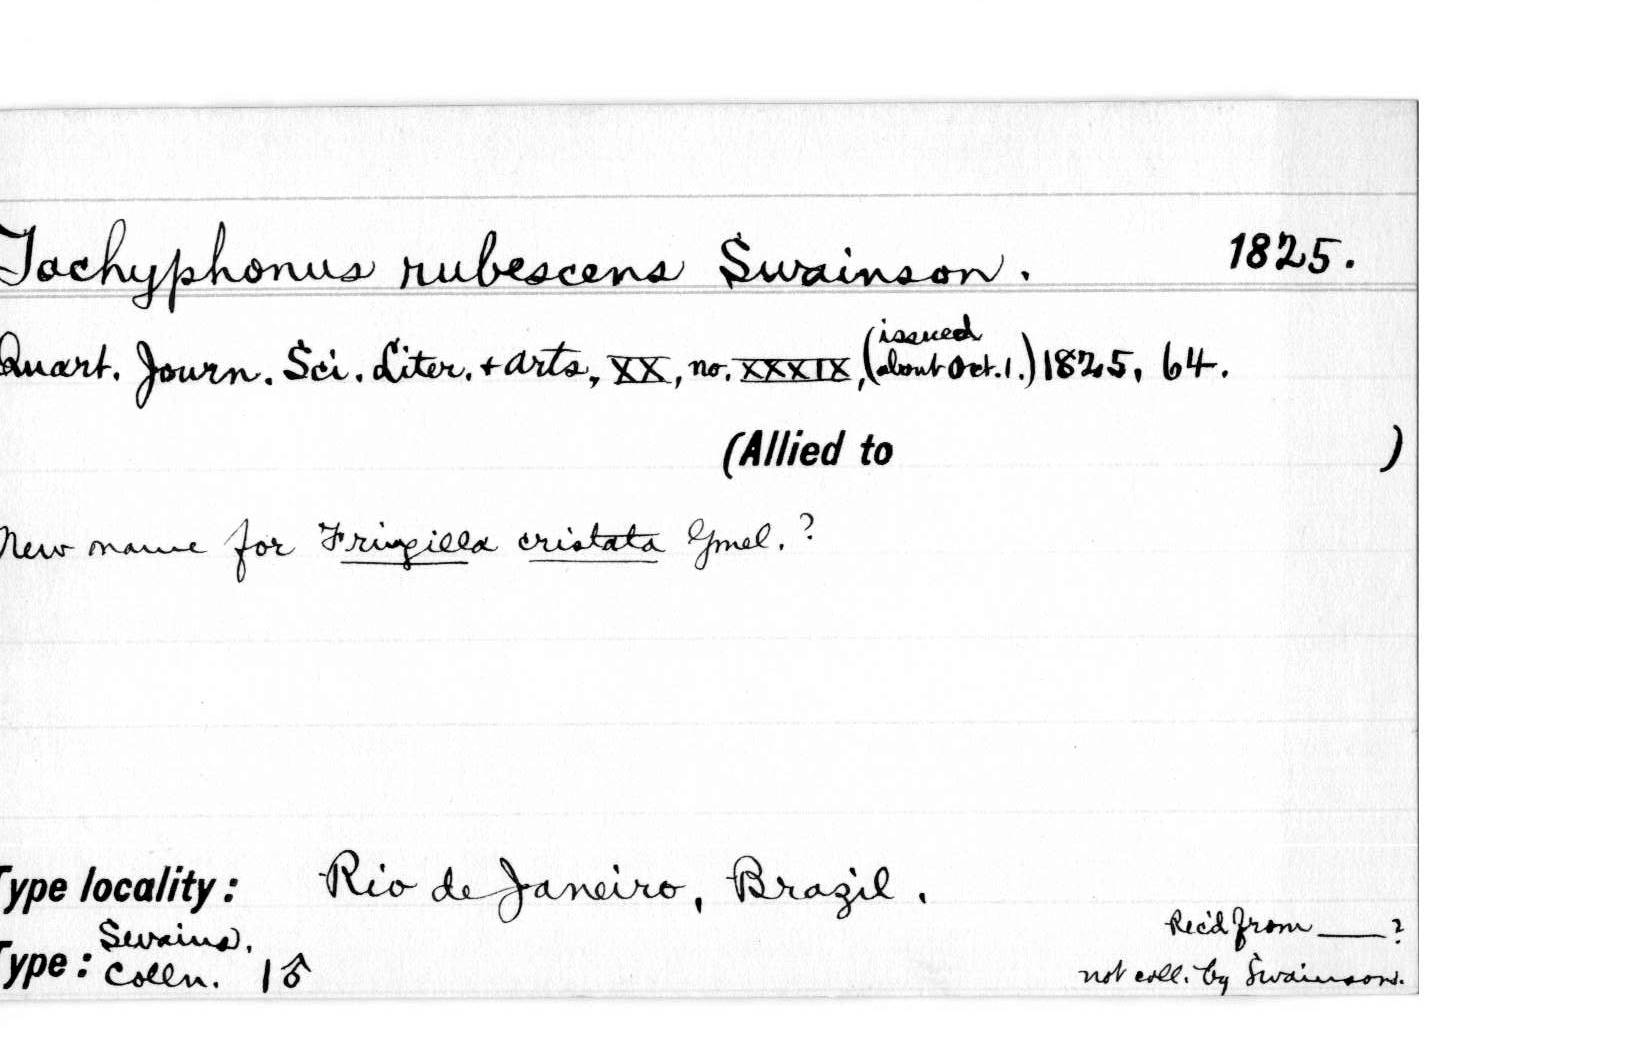 Tachyphonus rubescens Swainson. 1825.
Quart. Journ. Sci. Liter. + Arts, XX, no. XXXIX, (issued about Oct. 1.) 1825, 64.
(Allied to )
New name for Fringilla cristata Gmel.?
Type locality: Rio de Janeiro, Brazil.
Type: Swains. Colln. 1♂
Rec'd from ___?
not coll. by Swainson.